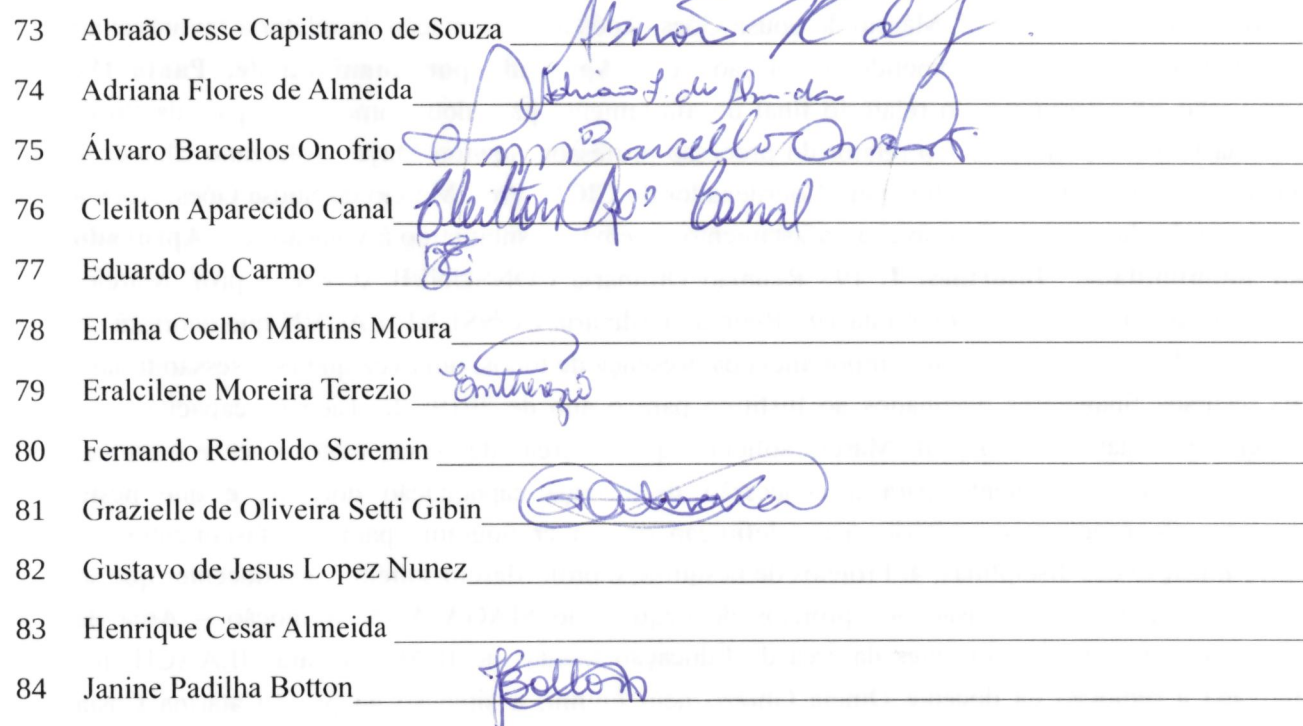 73 Abraão Jesse Capistrano de Souza
74 Adriana Flores de Almeida Adriana F. de Almeida
75 Álvaro Barcellos Onofrio Barcellos Onofrio
76 Cleilton Aparecido Canal Cleilton Apº Canal
77 Eduardo do Carmo
78 Elmha Coelho Martins Moura
79 Eralcilene Moreira Terezio
80 Fernando Reinoldo Scremin
81 Grazielle de Oliveira Setti Gibin
82 Gustavo de Jesus Lopez Nunez
83 Henrique Cesar Almeida
84 Janine Padilha Botton Botton